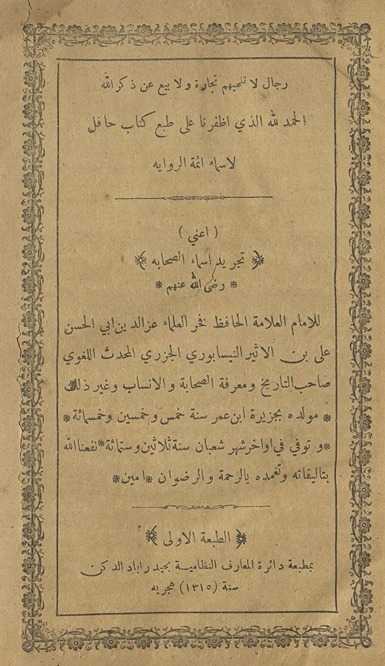 رجال لا تلهيهم تجارة ولا بيع عن ذكر الله
الحمد لله الذي اظفرنا على طبع كتاب حافل
لاسماء ائمة الروايه
( اعني )
﴿ تجريد أسماء الصحابه ﴾
* رضى الله عنهم *
للامام العلامة الحافظ فخر العلماء عزالد بن ابي الحسن
على بن الاثير النيسابوري الجزري المحدث اللغوي
صاحب التاريخ ومعرفة الصحابة والانساب وغير ذلك
* مولده بجزيرة ابن عمر سنة خمس وخمسين وخمسمائة *
* وتوفي في اواخر شهر شعبان سنة ثلاثين وستمائة * نفعنا الله
بتاليفاته وتغمده بالرحمة والرضوان * امين *
﴿ الطبعة الاولى ﴾
بمطبعة دائرة المعارف النظامية بحيدر اباد الدكن
سنة (١٣١٥) هجريه